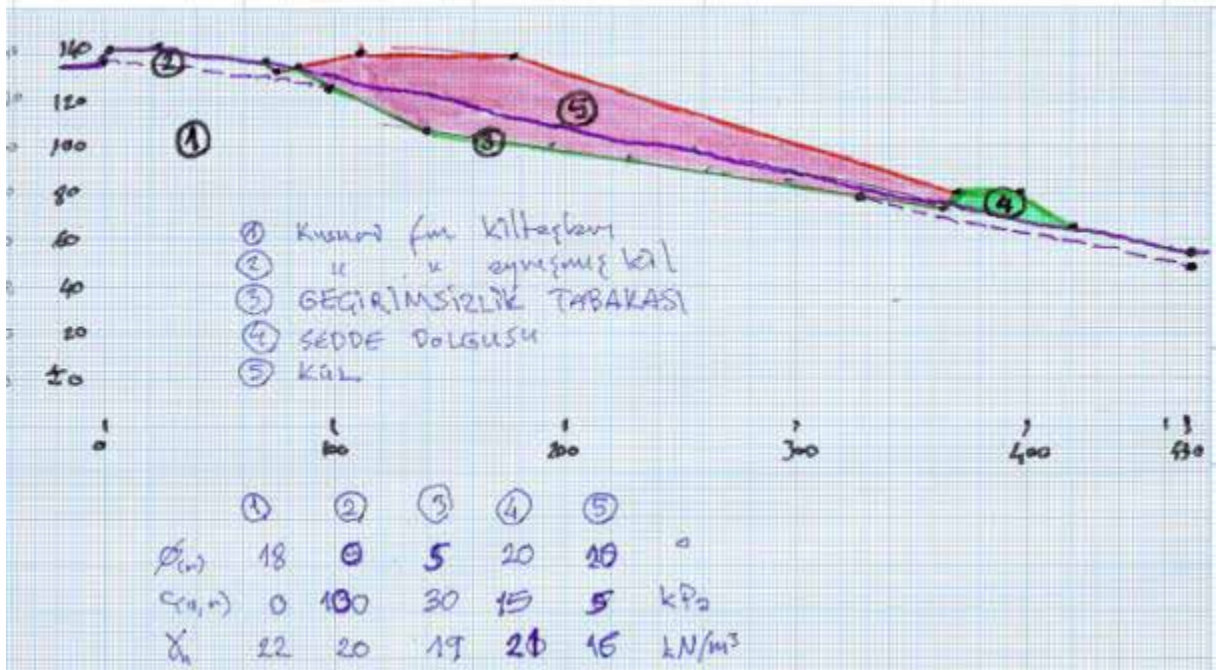 140
②
120
⑤
①
100
③
80
④
60
40
20
±0
① Kusuri fm kiltaşları
② " " ayrışmış kil
③ GEÇİRİMSİZLİK TABAKASI
④ SEDDE DOLGUSU
⑤ KÜL
0 100 200 300 400 470
① ② ③ ④ ⑤
18 0 5 20 20 °
0 100 30 15 5 kPa
γn 22 20 19 21 16 kN/m³